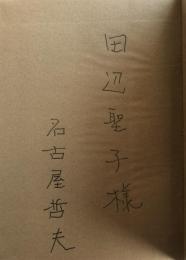 田辺聖子様
名古屋哲夫